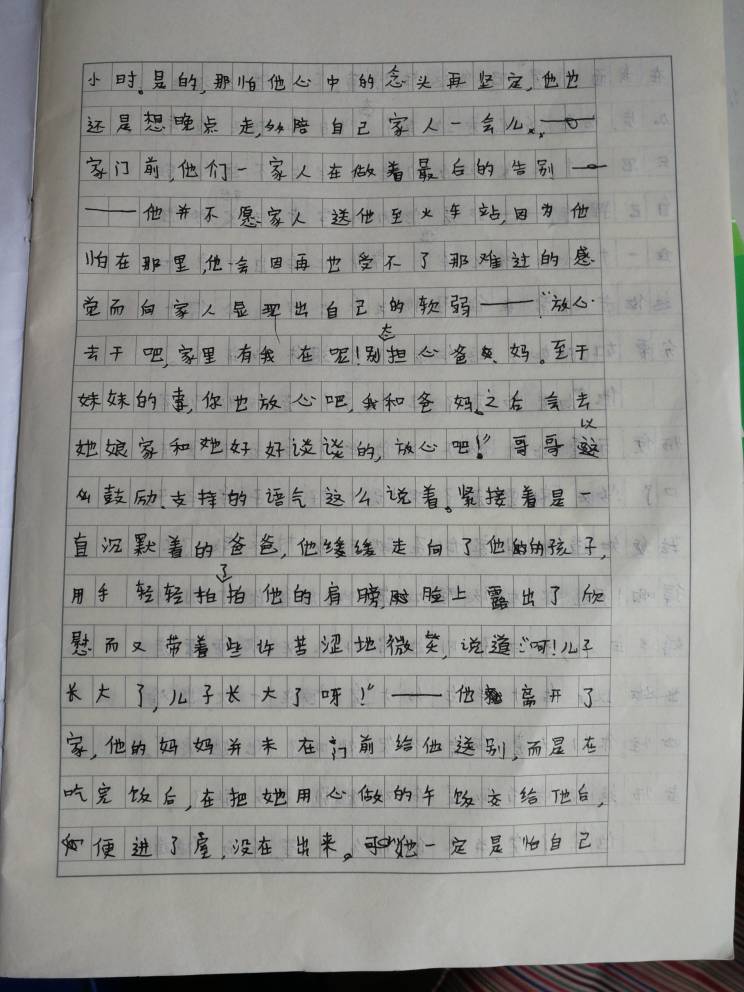 小时。是的,那怕他心中的念头再坚定,他也
还是想晚点走,多陪自己家人一会儿。
家门前,他们一家人在做着最后的告别—
——他并不愿家人送他至火车站,因为他
怕在那里,他会因再也受不了那难过的感
觉而向家人显现出自己的软弱——“放心
去干吧,家里有我在呢!别太担心爸妈。至于
妹妹的事,你也放心吧,我和爸妈之后会去
她娘家和她好好谈谈的,放心吧!”哥哥以这
么鼓励、支持的语气这么说着。紧接着是一
直沉默着的爸爸,他缓缓走向了他的孩子,
用手轻轻拍了拍他的肩膀,脸上露出了欣
慰而又带着些许苦涩地微笑,说道:“呵!儿子
长大了,儿子长大了呀!”——他离开了
家,他的妈妈并未在门前给他送别,而是在
吃完饭后,在把她用心做的午饭交给他后,
便进了屋,没在出来。可她一定是怕自己